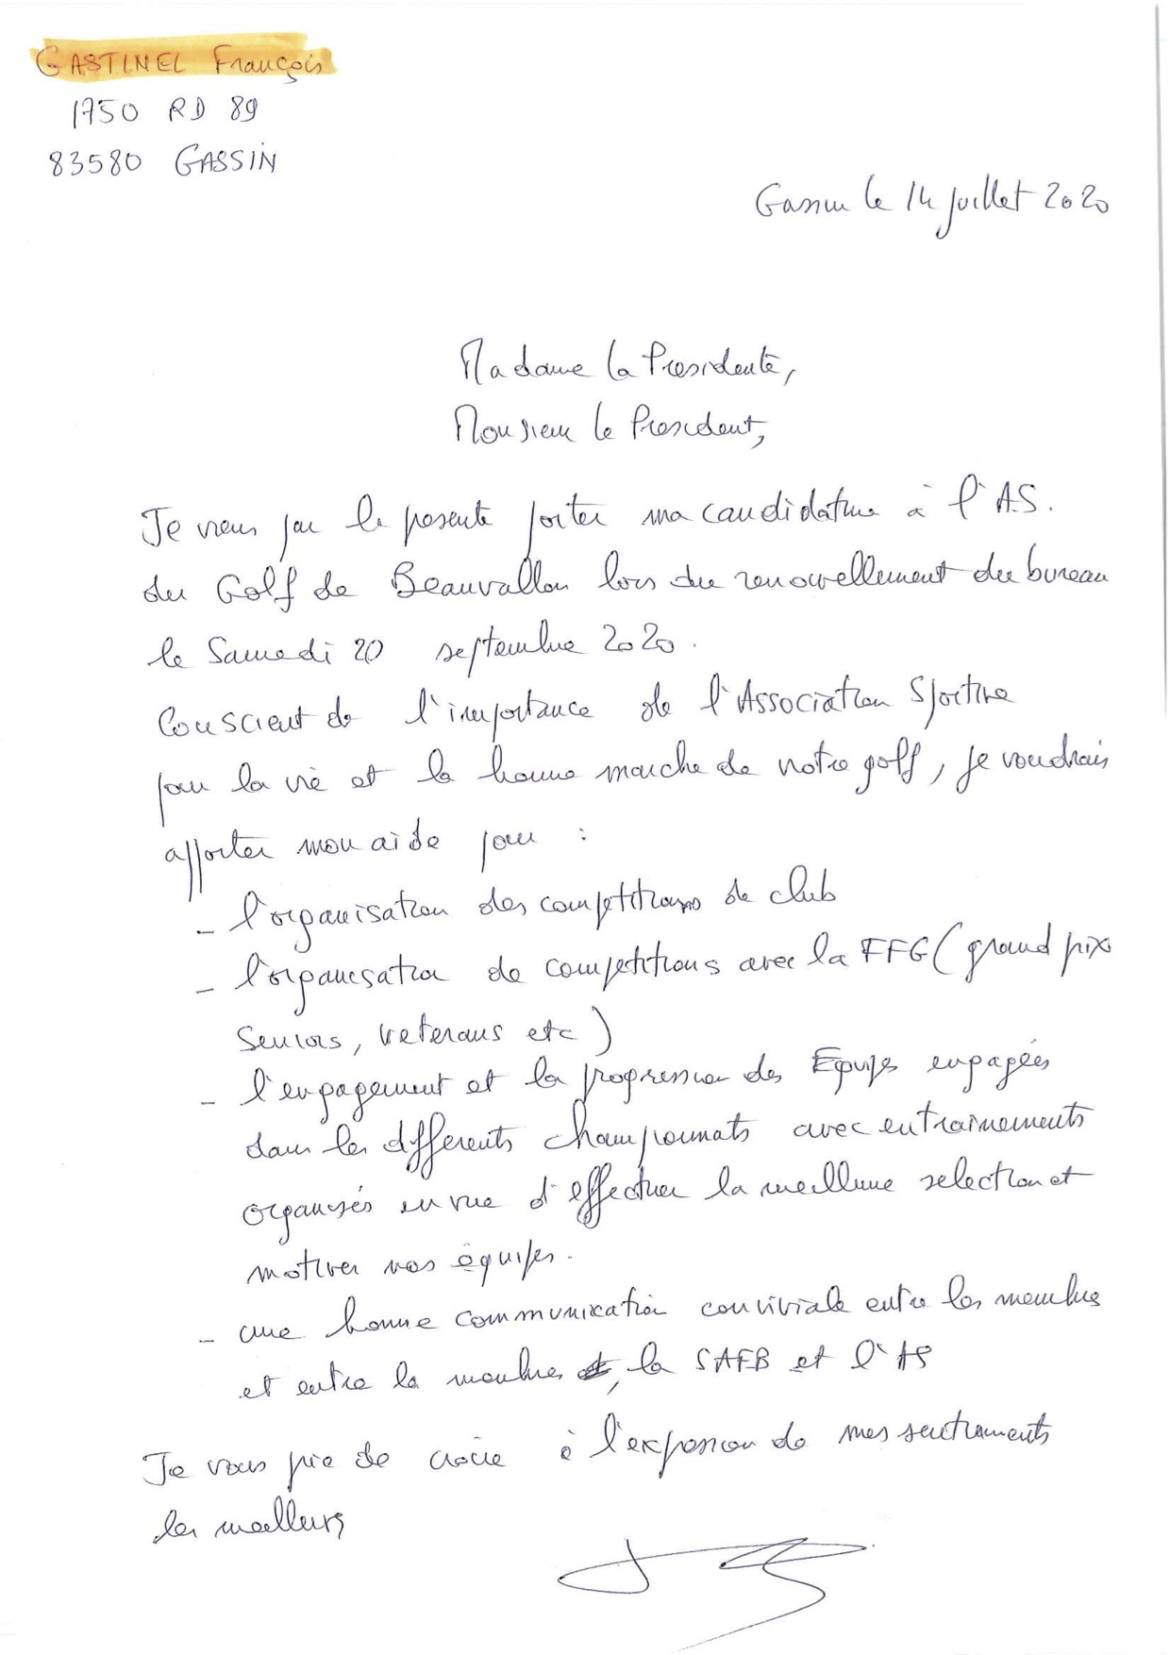 GASTINEL François
1750 RD 89
83580 GASSIN
Gassin le 14 juillet 2020
Madame la Presidente,
Monsieur le President,
Je viens par la presente porter ma candidature à l'A.S.
du Golf de Beauvallon lors du renouvellement du bureau
le Samedi 20 septembre 2020.
Conscient de l'importance de l'Association Sportive
pour la vie et la bonne marche de notre golf, je voudrais
apporter mon aide pour :
- l'organisation des competitions de club
- l'organisation de competitions avec la FFG (grand prix
Seniors, veterans etc)
- l'engagement et la progression des Equipes engagées
dans les differents championnats avec entrainements
organisés en vue d'effectuer la meilleure selection et
motiver nos équipes.
- une bonne communication conviviale entre les membres
et entre les membres, la SAFB et l'AS
Je vous prie de croire à l'expression de mes sentiments
les meilleurs